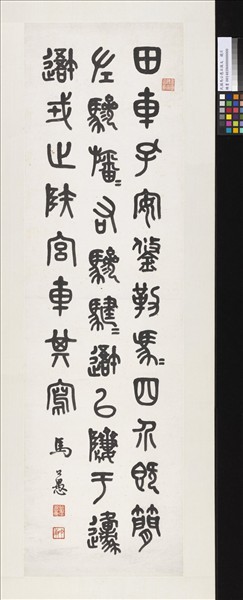 田車孔安鋚勒馬₌四介既簡
左驂旛₌右驂騝₌𨖍以隮于邍
𨖍戎止陝宮車其寫
馬公愚